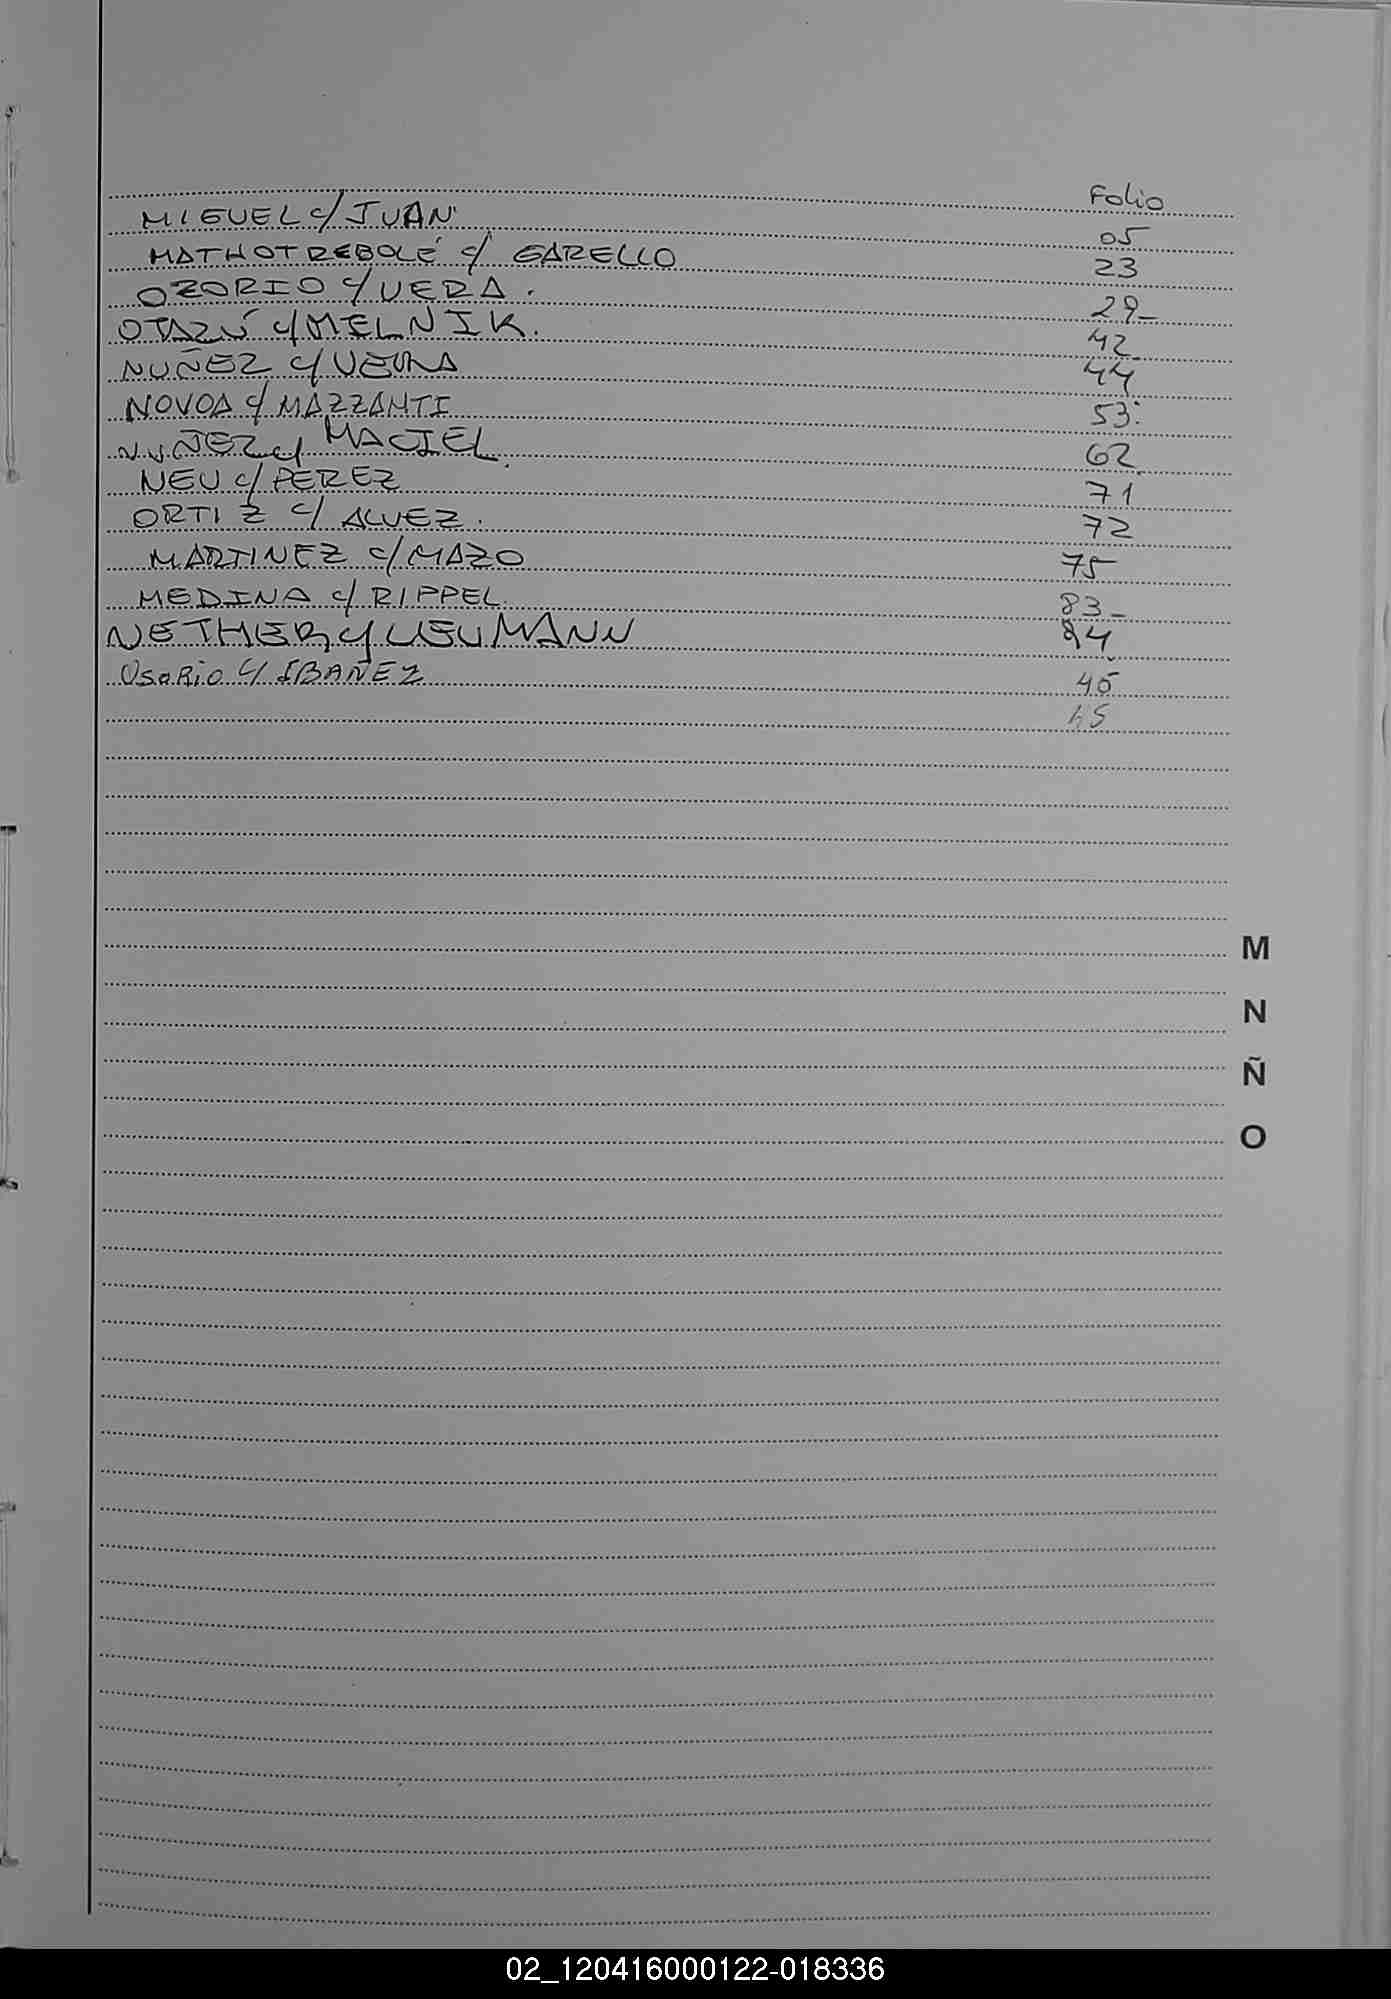 Folio
MIGUEL c/ JUAN 05
MATHOTREBOLÉ c/ GARELLO 23
OZORIO c/ VERA. 29-
OTAZÚ c/ MELNIK. 42
NUÑEZ c/ 44
NOVOA c/ MAZZANTI 53
NUÑEZ c/ MACIEL. 62
NEU c/ PEREZ 71
ORTIZ c/ ALVEZ. 72
MARTINEZ c/ MAZO 75
MEDINA c/ RIPPEL 83-
NETHER c/ 84
OsoRio c/ IBAÑEZ 45
45
M
N
Ñ
O
02_120416000122-018336